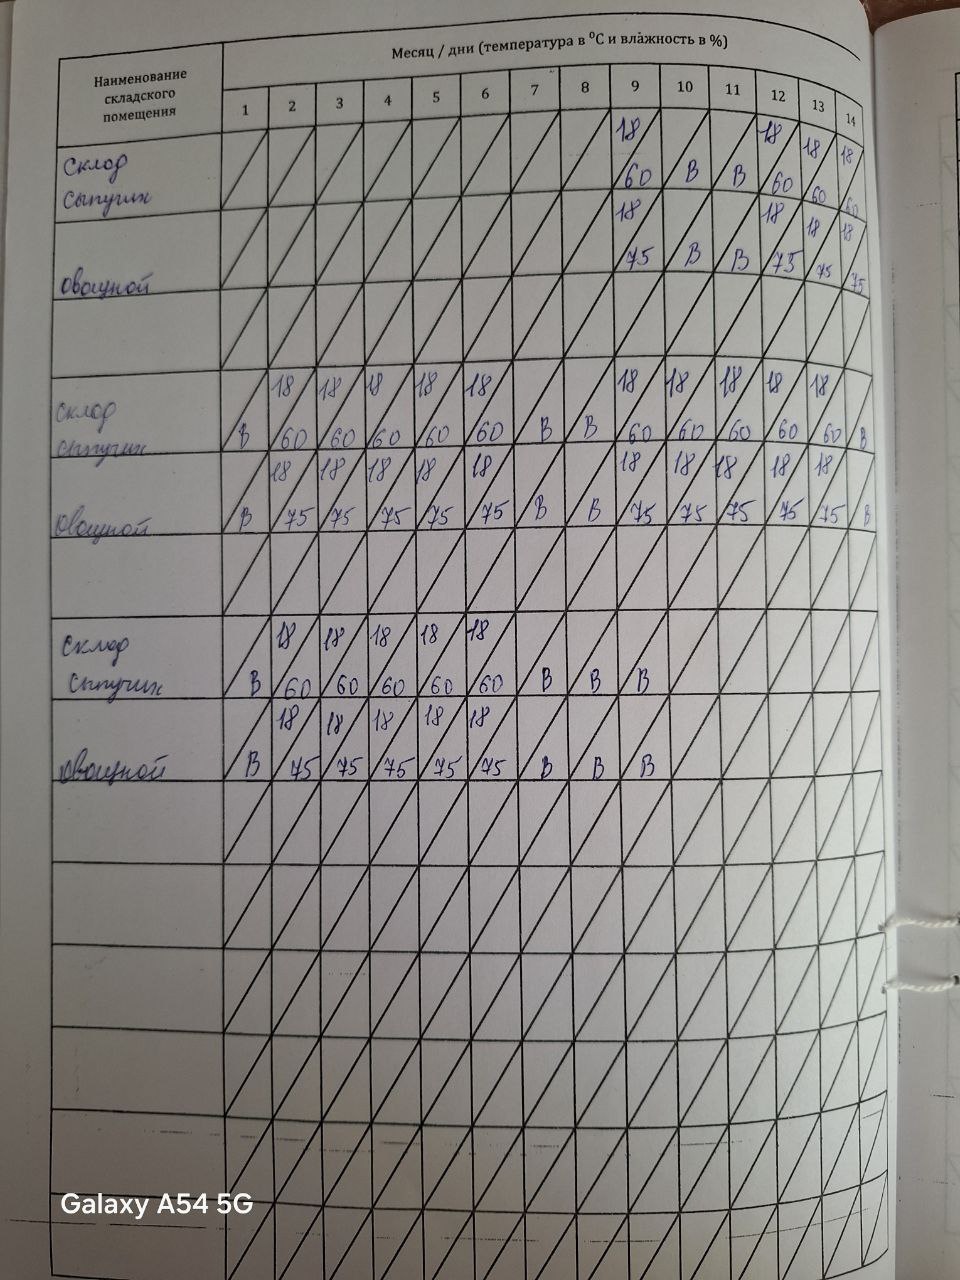 Месяц / дни (температура в ⁰С и влажность в %)
Наименование
складского
помещения
1 2 3 4 5 6 7 8 9 10 11 12 13 14
18 18 18 18
Склад
сыпучих 60 В В 60 60 60
18 18 18 18
овощной 75 В В 75 75 75
18 18 18 18 18 18 18 18 18 18
склад
сыпучих В 60 60 60 60 60 В В 60 60 60 60 60 В
18 18 18 18 18 18 18 18 18 18
овощной В 75 75 75 75 75 В В 75 75 75 75 75 В
18 18 18 18 18
Склад
сыпучих В 60 60 60 60 60 В В В
18 18 18 18 18
овощной В 75 75 75 75 75 В В В
Galaxy A54 5G